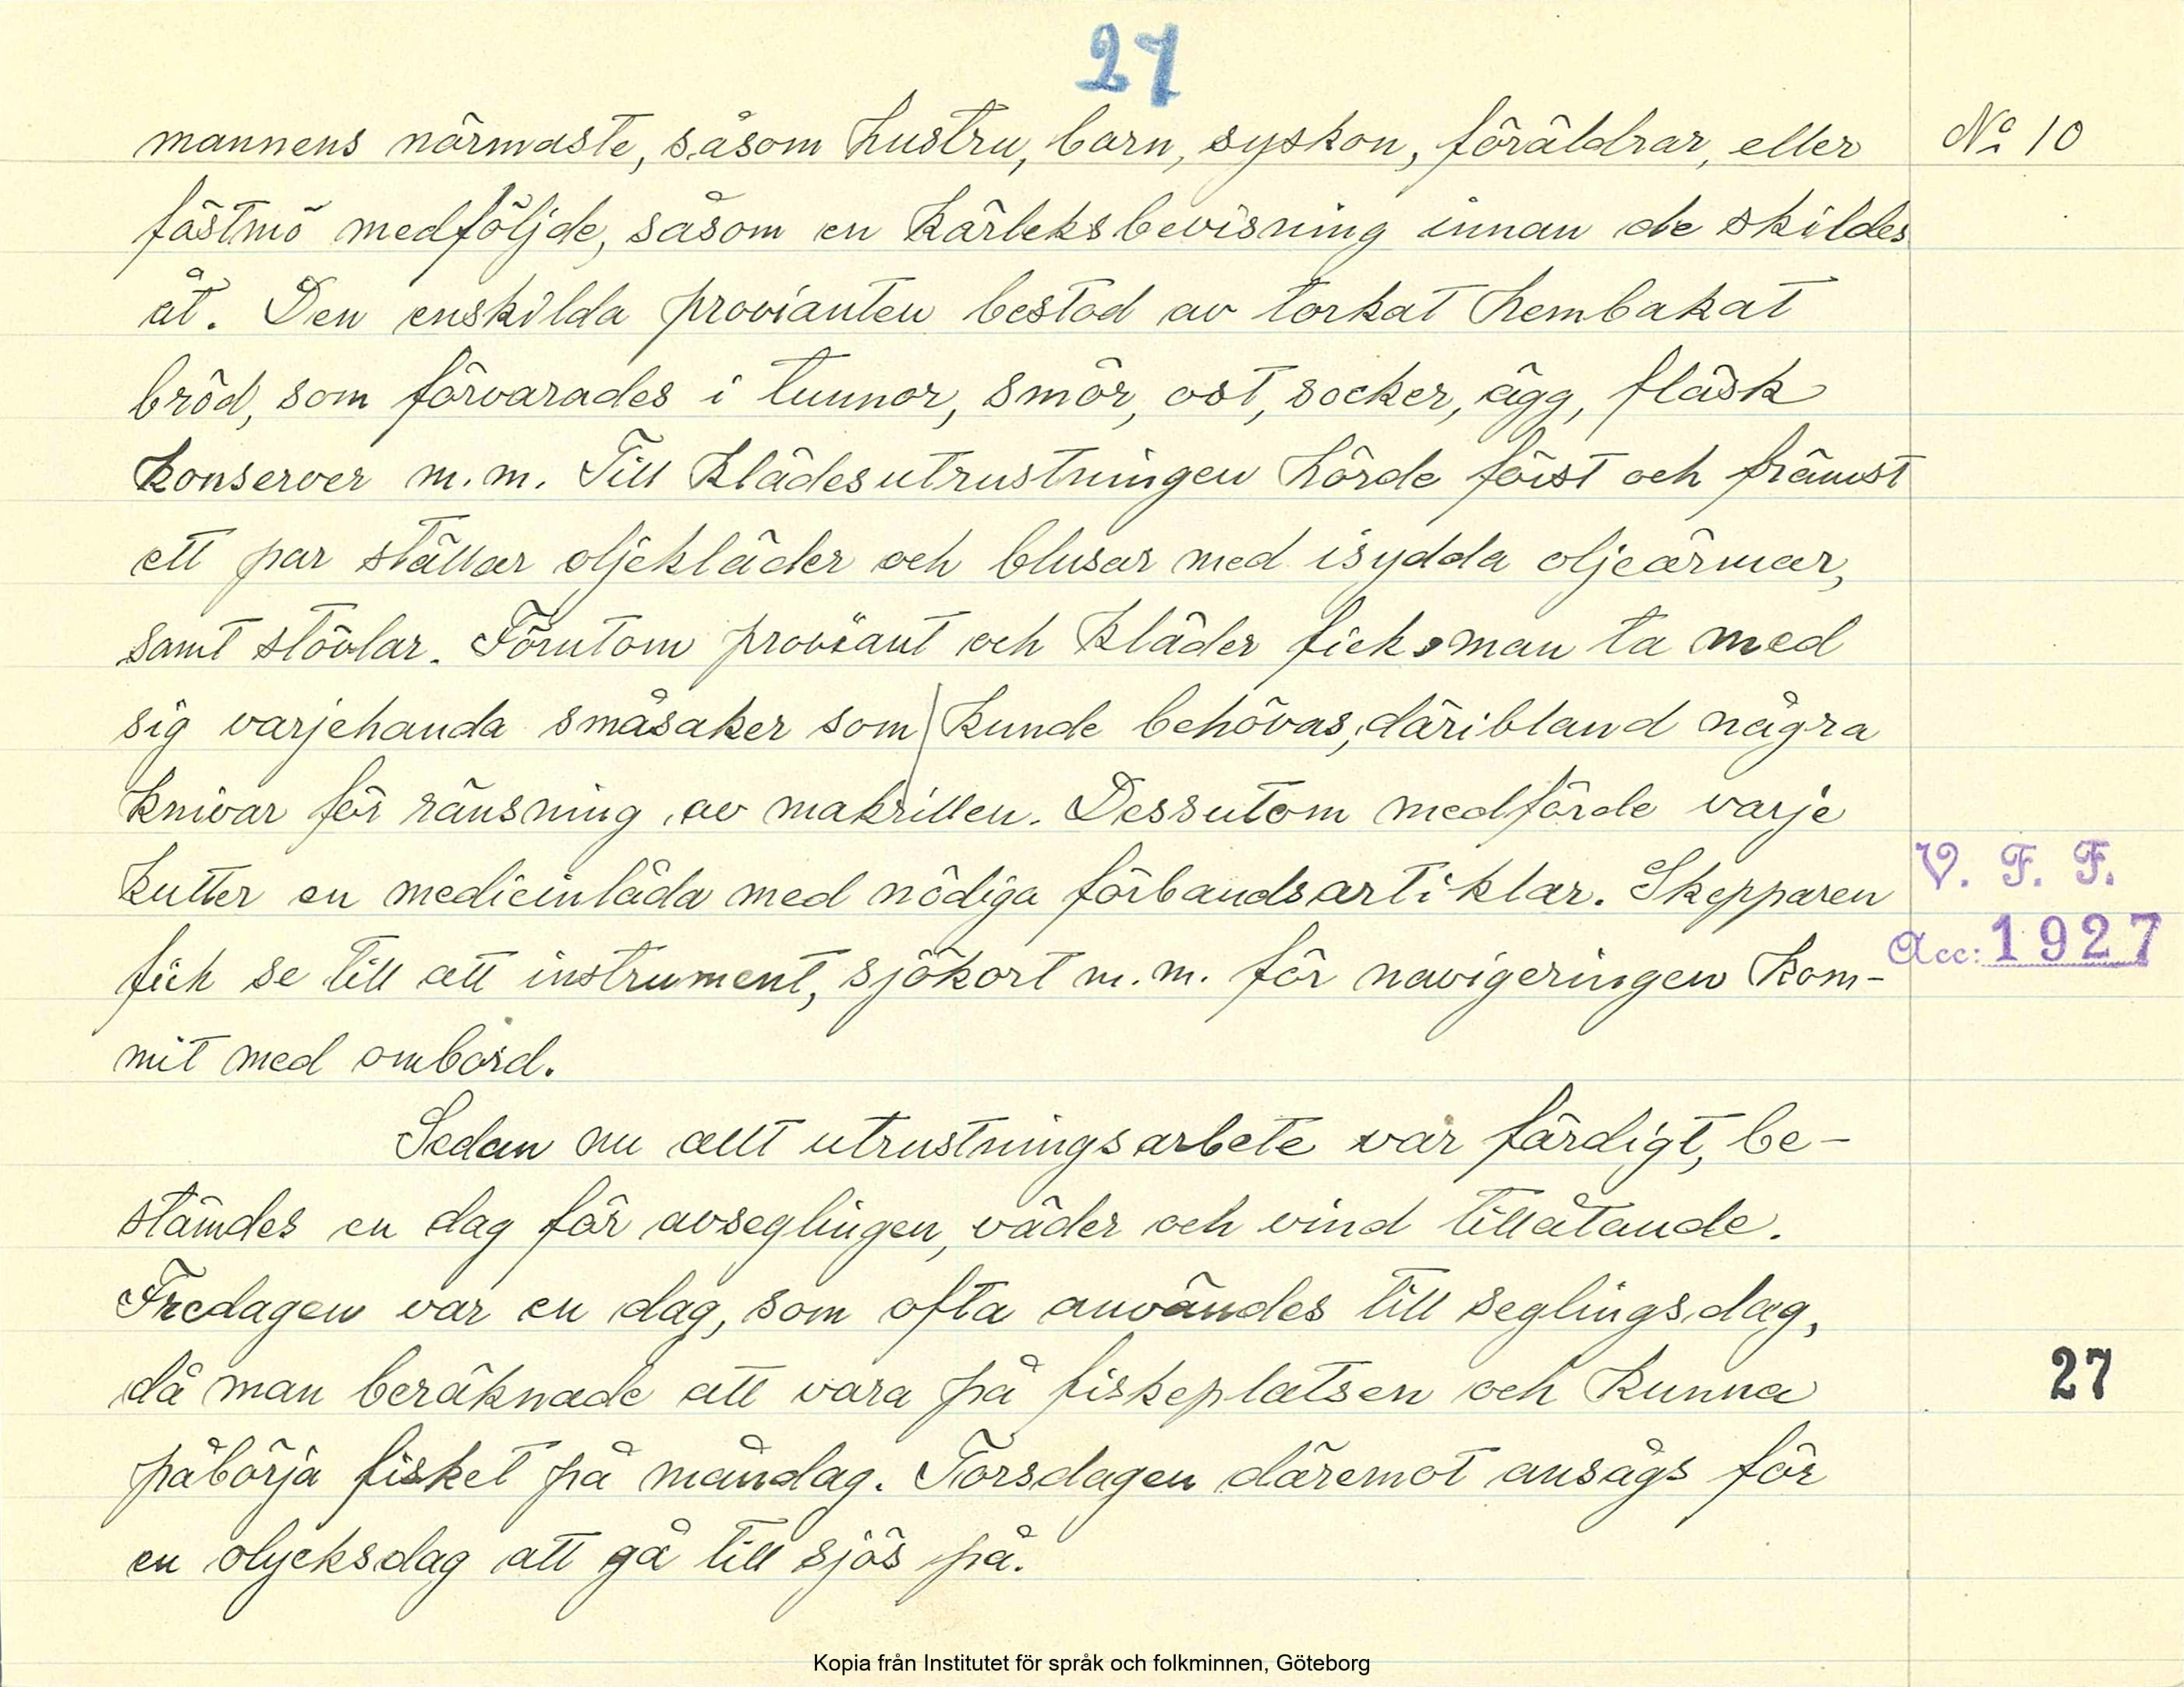 27
mannens närmaste, såsom hustru, barn, syskon, föräldrar, eller
No 10
fästmö medföljde, såsom en kärleksbevisning innan de skildes
åt. Den enskilda provianten bestod av torkat hembakat
bröd, som förvarades i tunnor, smör, ost, socker, ägg, fläsk
konserver m.m. Till klädesutrustningen hörde först och främst
ett par ställar oljekläder och blusar med isydda oljeärmar,
samt stövlar. Förutom proviant och kläder fick man ta med
sig varjehanda småsaker som kunde behövas, däribland några
knivar för ränsning av makrillen. Dessutom medförde varje
kutter en medicinlåda med nödiga förbandsartiklar. Skepparen
V. F. F.
fick se till att instrument, sjökort m.m. för navigeringen kom-
Acc: 1927
mit med ombord.
Sedan nu allt utrustningsarbete var färdigt, be-
stämdes en dag för avseglingen, väder och vind tillåtande.
Fredagen var en dag, som ofta användes till seglingsdag,
då man beräknade att vara på fiskeplatsen och kunna
27
påbörja fisket på måndag. Torsdagen däremot ansågs för
en olycksdag att gå till sjös på.
Kopia från Institutet för språk och folkminnen, Göteborg